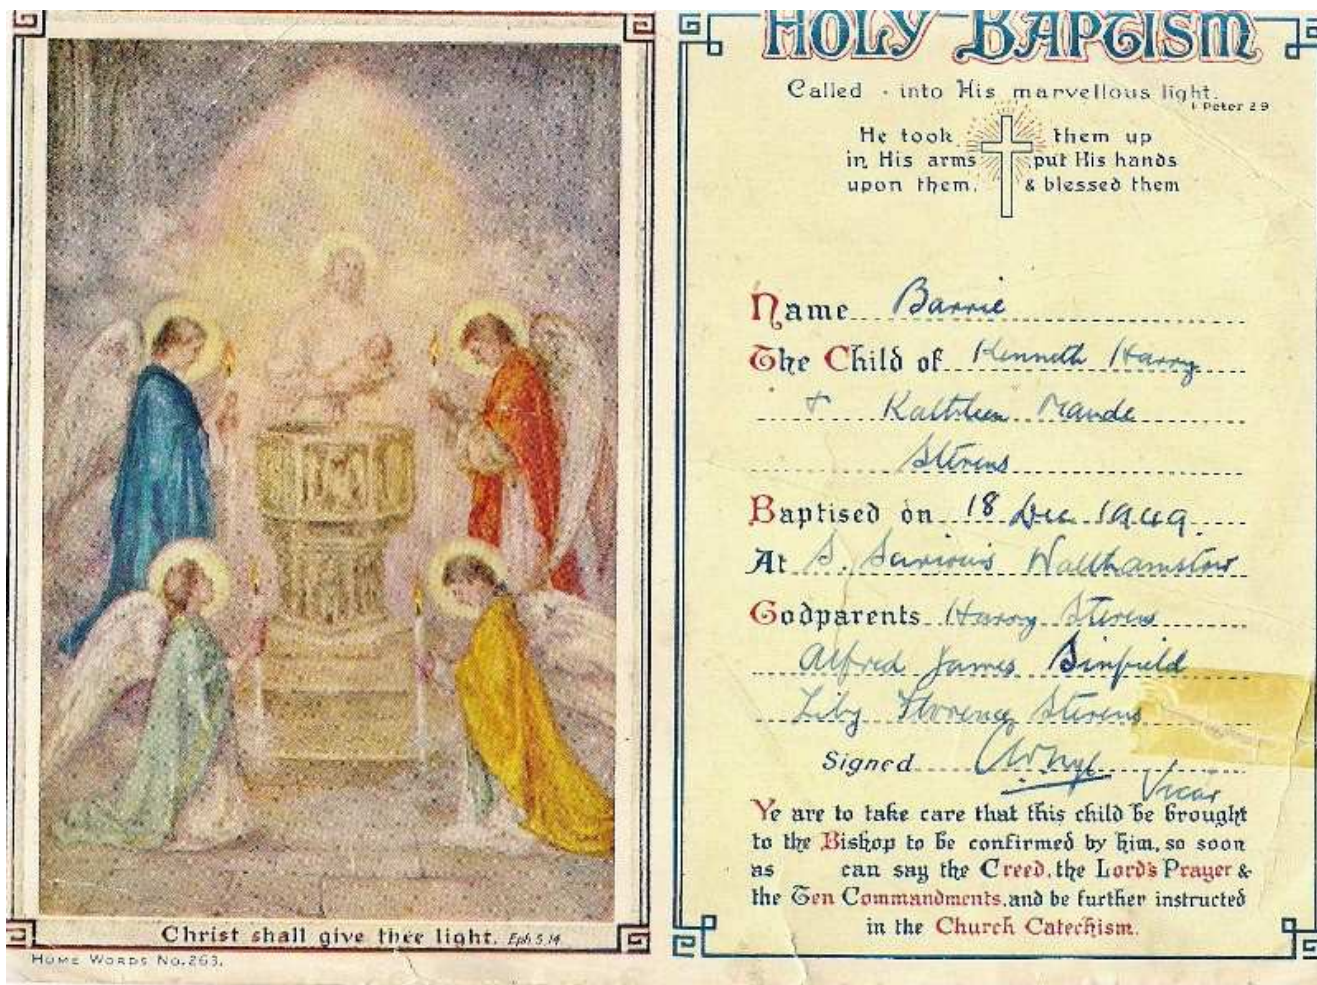 Christ shall give thee light. Eph 5.14
HOME WORDS No.263.
HOLY BAPTISM
Called · into His marvellous light.
1 Peter 2 9
He took them up
in His arms put His hands
upon them, & blessed them
Name Barrie
The Child of Kenneth Harry
+ Kathleen Maude
Stevens
Baptised on 18 Dec 1949.
At S. Saviour's Walthamstow
Godparents Harry Stevens
Alfred James Sinfield
Lily Florence Stevens
Signed
Vicar
Ye are to take care that this child be brought
to the Bishop to be confirmed by him, so soon
as can say the Creed, the Lord's Prayer &
the Ten Commandments, and be further instructed
in the Church Catechism.